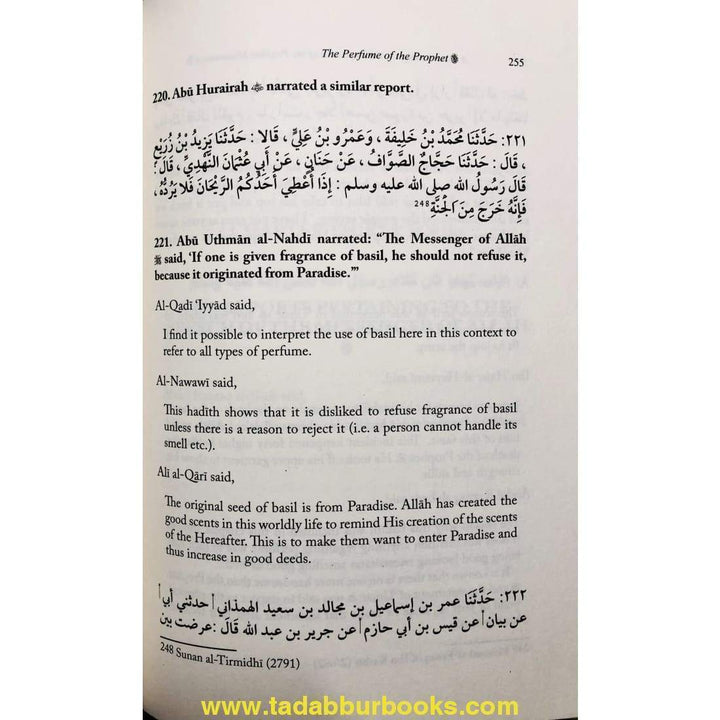 The Perfume of the Prophet ﷺ 255
220. Abū Hurairah narrated a similar report.
٢٢١: حَدَّثَنَا مُحَمَّدُ بْنُ خَلِيفَةَ، وَعَمْرُو بْنُ عَلِيٍّ، قَالَا: حَدَّثَنَا يَزِيدُ بْنُ زُرَيْعٍ
، قَالَ: حَدَّثَنَا حَجَّاجٌ الصَّوَّافُ، عَنْ حَنَانٍ، عَنْ أَبِي عُثْمَانَ النَّهْدِيِّ، قَالَ:
قَالَ رَسُولُ اللهِ صلى الله عليه وسلم: إِذَا أُعْطِيَ أَحَدُكُمُ الرَّيْحَانَ فَلَا يَرُدَّهُ،
فَإِنَّهُ خَرَجَ مِنَ الْجَنَّةِ248
221. Abū Uthmān al-Nahdī narrated: “The Messenger of Allāh
ﷺ said, ‘If one is given fragrance of basil, he should not refuse it,
because it originated from Paradise.’”
Al-Qadī ‘Iyyād said,
I find it possible to interpret the use of basil here in this context to
refer to all types of perfume.
Al-Nawawī said,
This hadīth shows that it is disliked to refuse fragrance of basil
unless there is a reason to reject it (i.e. a person cannot handle its
smell etc.).
Alī al-Qārī said,
The original seed of basil is from Paradise. Allāh has created the
good scents in this worldly life to remind His creation of the scents
of the Hereafter. This is to make them want to enter Paradise and
thus increase in good deeds.
٢٢٢: حَدَّثَنَا عمر بن إسماعيل بن مجالد بن سعيد الهمذاني أحدثني أبي أ
عن بيان أعن قيس بن أبي حازم أعن جرير بن عبد الله قَالَ: عرضت بين
248 Sunan al-Tirmidhī (2791)
www.tadabburbooks.com